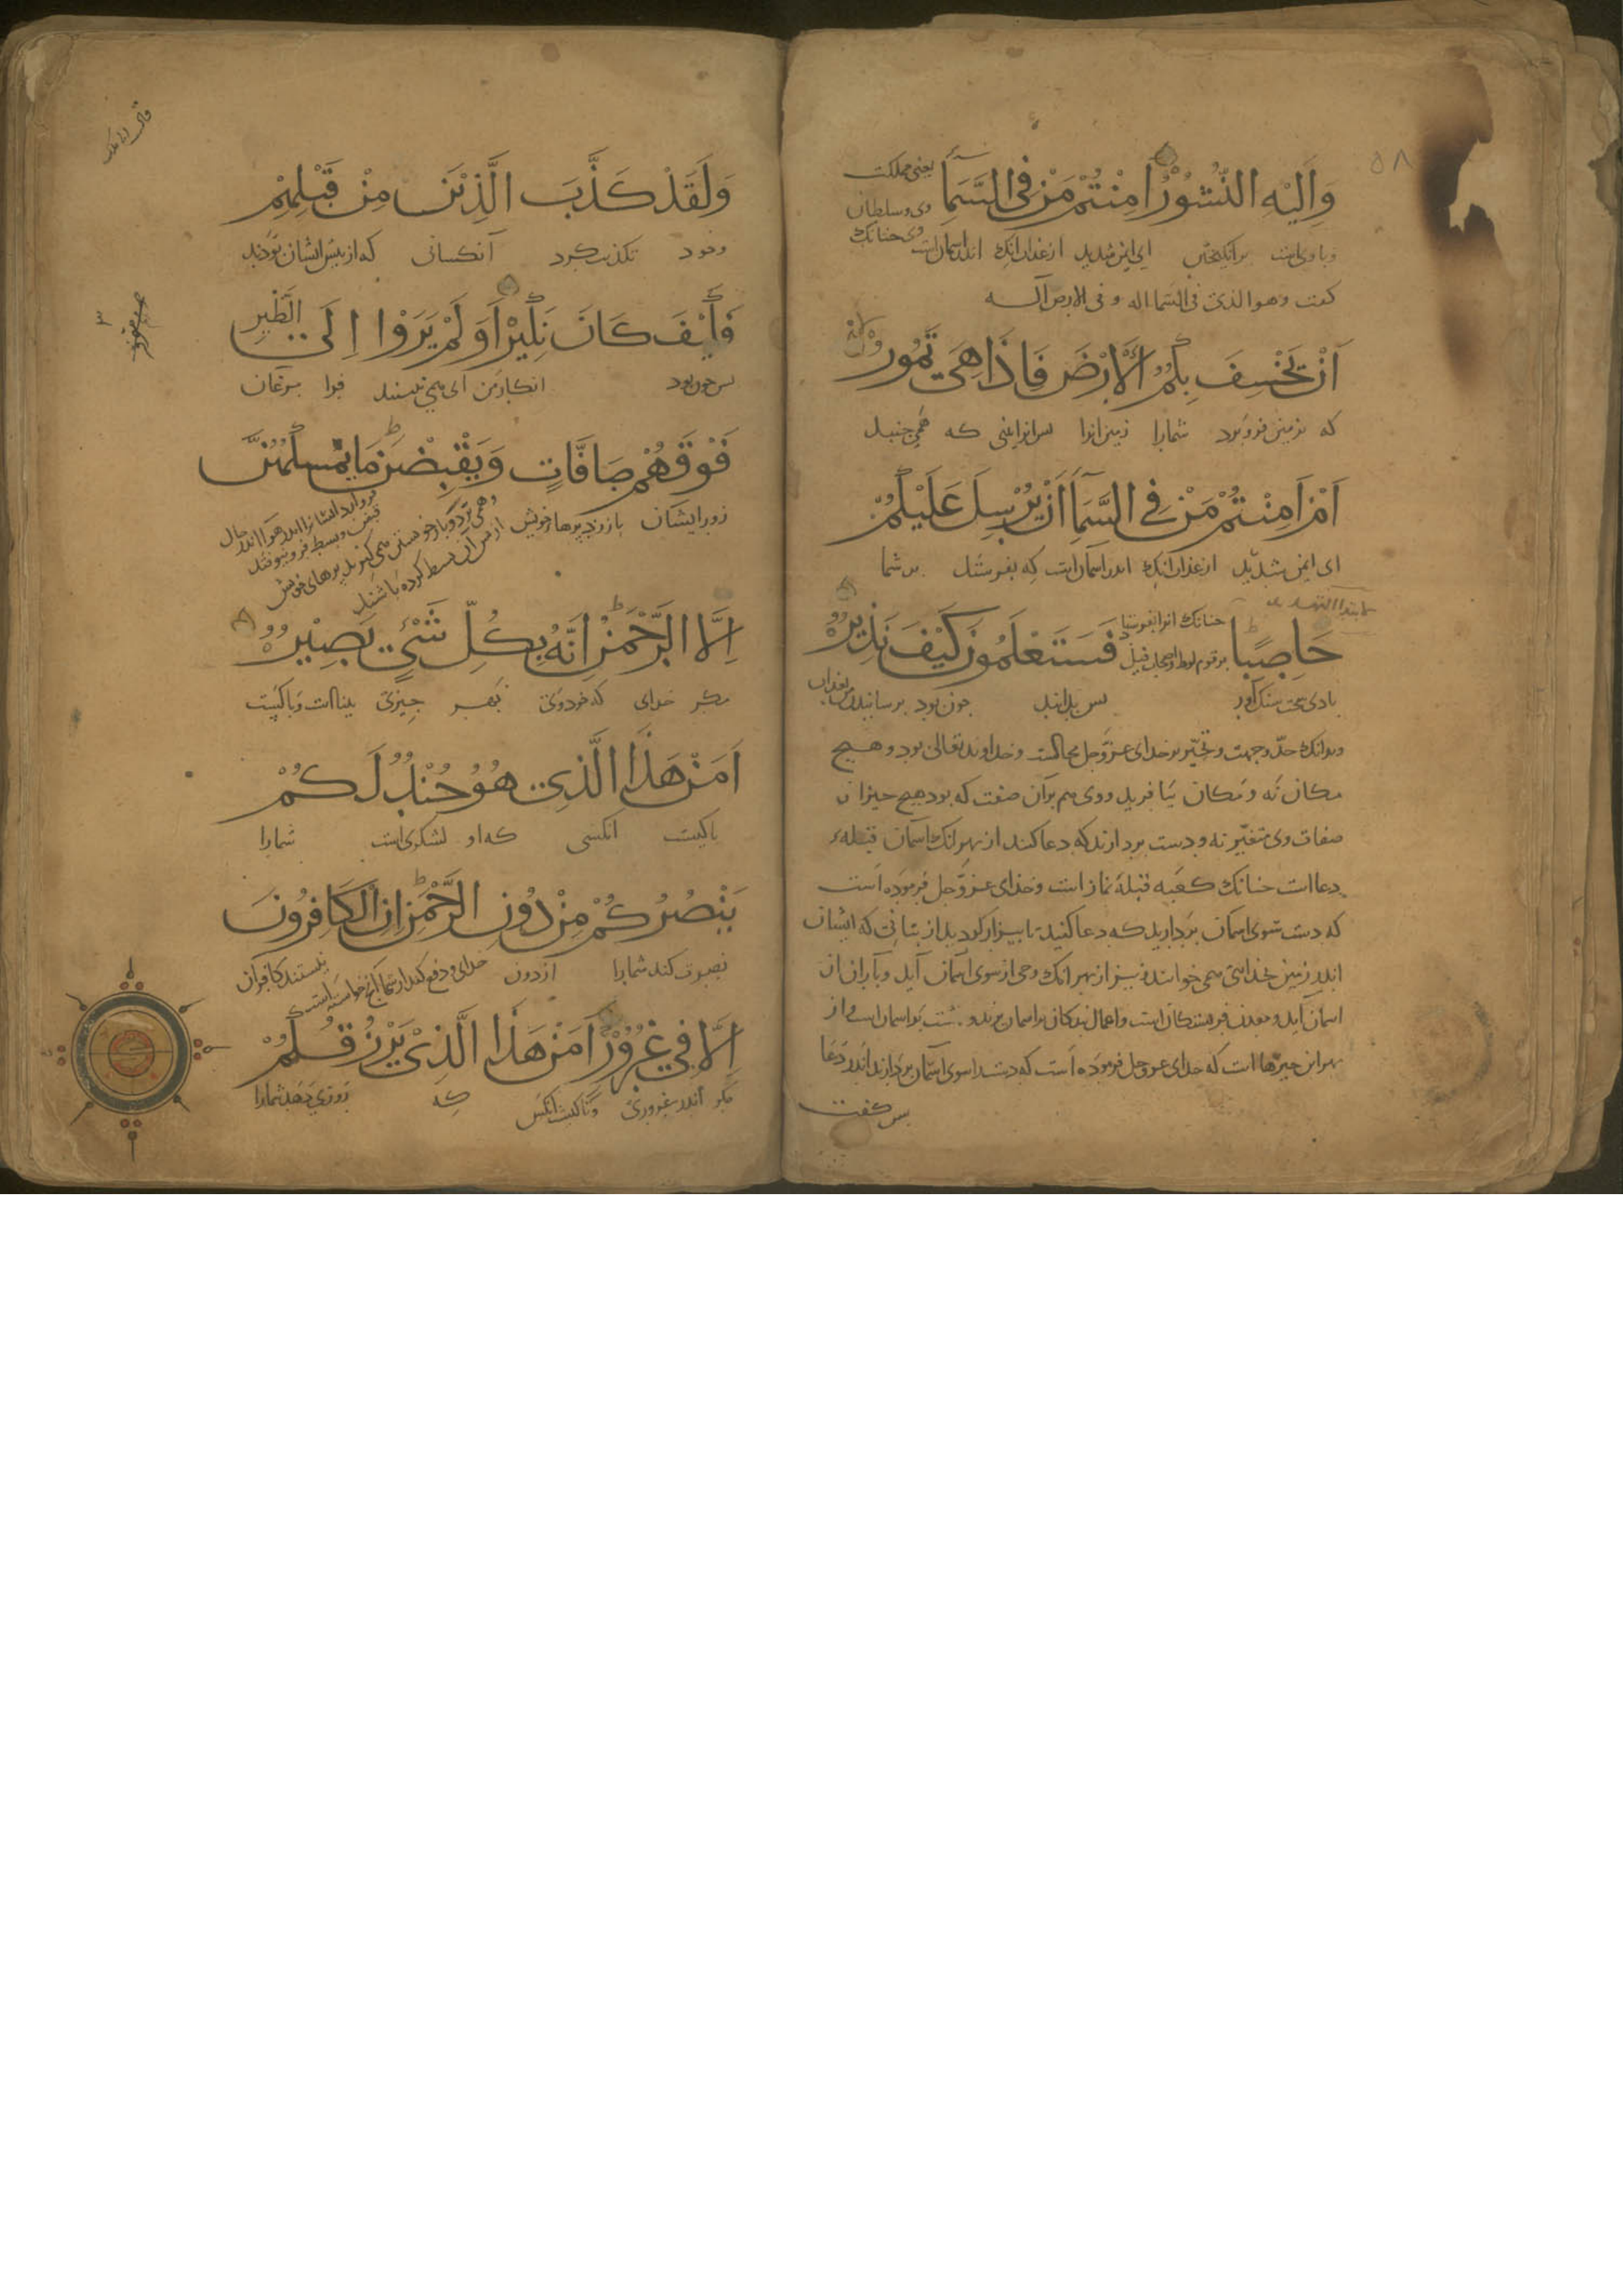 وَاِلَيْهِ النُّشُوْرُ اَمِنْتُمْ مَنْ فِي السَّمَآءِ
یعنی مملکت
وی و سلطان
وی چنانک
و با وی است برانگیختن ای ایمن شدید از عذاب آنک اندر آسمان است
کفت وهو الذی فی السما اله و فی الارض اله
اَنْ يَخْسِفَ بِكُمُ الْاَرْضَ فَاِذَا هِيَ تَمُوْرُ
که بزمین فرو برد شمارا زمین انرا بس انرا بینی که همی جنبد
اَمْ اَمِنْتُمْ مَنْ فِي السَّمَآءِ اَنْ يُرْسِلَ عَلَيْكُمْ
ای ایمن شدید از عذاب آنک اندر آسمان است که بفرستد بر شما
حَاصِبًا
چنانک انرا بفرستاد
بر قوم لوط و اصحاب فیل
فَسَتَعْلَمُوْنَ كَيْفَ نَذِيْرِ
بادی سخت سنک آور بس بدانید جون بود ترسانیدن من بعذاب
وبدانک حدّ وجهت وتحیّز بر خدای عزّوجل محالست وخداوند تعالی بود و هیچ
مکان نه و مکان بیافرید و وی هم بر آن صفت که بود هیچ چیز از
صفات وی متغیّر نه و دست بردارند که دعا کنند از بهر انک آسمان قبلهٔ
دعا است چنانک کعبه قبلهٔ نماز است وخدای عزّوجل فرموده است
که دست سوی اسمان بردارید که دعا کنید تا بیزار کردید از بتانی که ایشان
اندر زمین بخدائی همی خوانند و نیز از بهر انک وحی از سوی آسمان آید و باران از
اسمان آید و معدن فریشتکان است و اعمال بندکان بر اسمان برند و بهشت بر اسمان است و از
بهر این چیزها است که خدای عزوجل فرموده است که دست سوی آسمان بردارند اندر دعا
بس کفت
وَلَقَدْ كَذَّبَ الَّذِيْنَ مِنْ قَبْلِهِمْ
وخود تکذیب کرد آنکسانی که از بیش ایشان بودند
فَكَيْفَ كَانَ نَكِيْرِ اَوَلَمْ يَرَوْا اِلَى الطَّيْرِ
بس جون بود انکار من ای همی نبینند فرا مرغان
فَوْقَهُمْ صَافَّاتٍ وَيَقْبِضْنَ مَا يُمْسِكُهُنَّ
زبر ایشان باز زده پرها خویش
وهمی نکیرد و باز خویشتن همی کیرند پرهای خویش
از پس آن بسط کرده باشند
اِلَّا الرَّحْمٰنُ اِنَّهُ بِكُلِّ شَيْءٍ بَصِيْرٌ
مکر خدای که خود وی بهر چیزی بینا است و یا کیست
اَمَّنْ هَذَا الَّذِي هُوَ جُنْدٌ لَكُمْ
یا کیست انکسی که او لشکری است شمارا
يَنْصُرُكُمْ مِنْ دُوْنِ الرَّحْمٰنِ اِنِ الْكَافِرُوْنَ
نصرت کند شمارا از دون خدای و دفع کند از شما آنچ خواسته است نیستند کافران
اِلَّا فِي غُرُوْرٍ اَمَّنْ هَذَا الَّذِيْ يَرْزُقُكُمْ
مکر اندر غروری ویا کیست انکس که روزی دهد شمارا